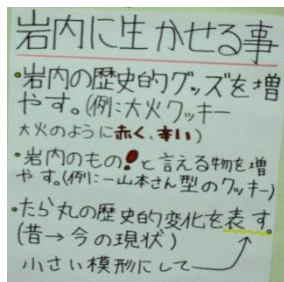 岩内に生かせる事
•岩内の歴史的グッズを増
やす。(例:大火クッキー
大火のように赤く、辛い)
•岩内のもの!と言える物を増
やす。(例:一山本さん型のクッキー)
•たら丸の歴史的変化を表す。
(昔→今の現状)
小さい模形にして